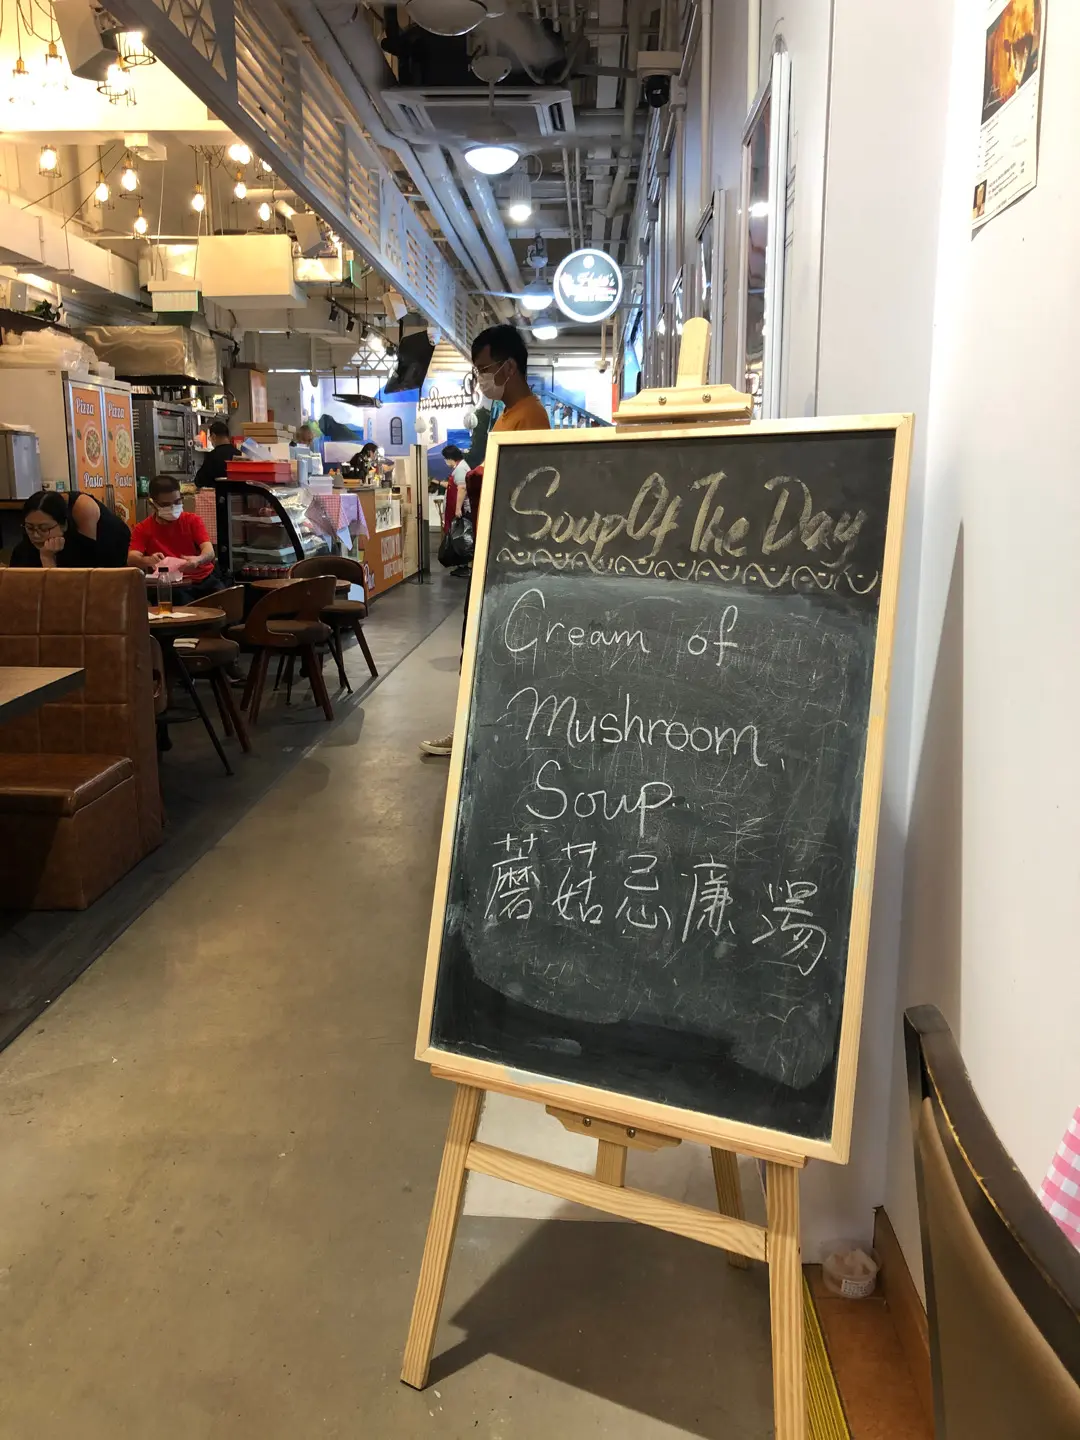 Soup Of The Day
Cream of
Mushroom
Soup
蘑菇忌廉湯
Pizza
Pizza
Pasta
Pasta